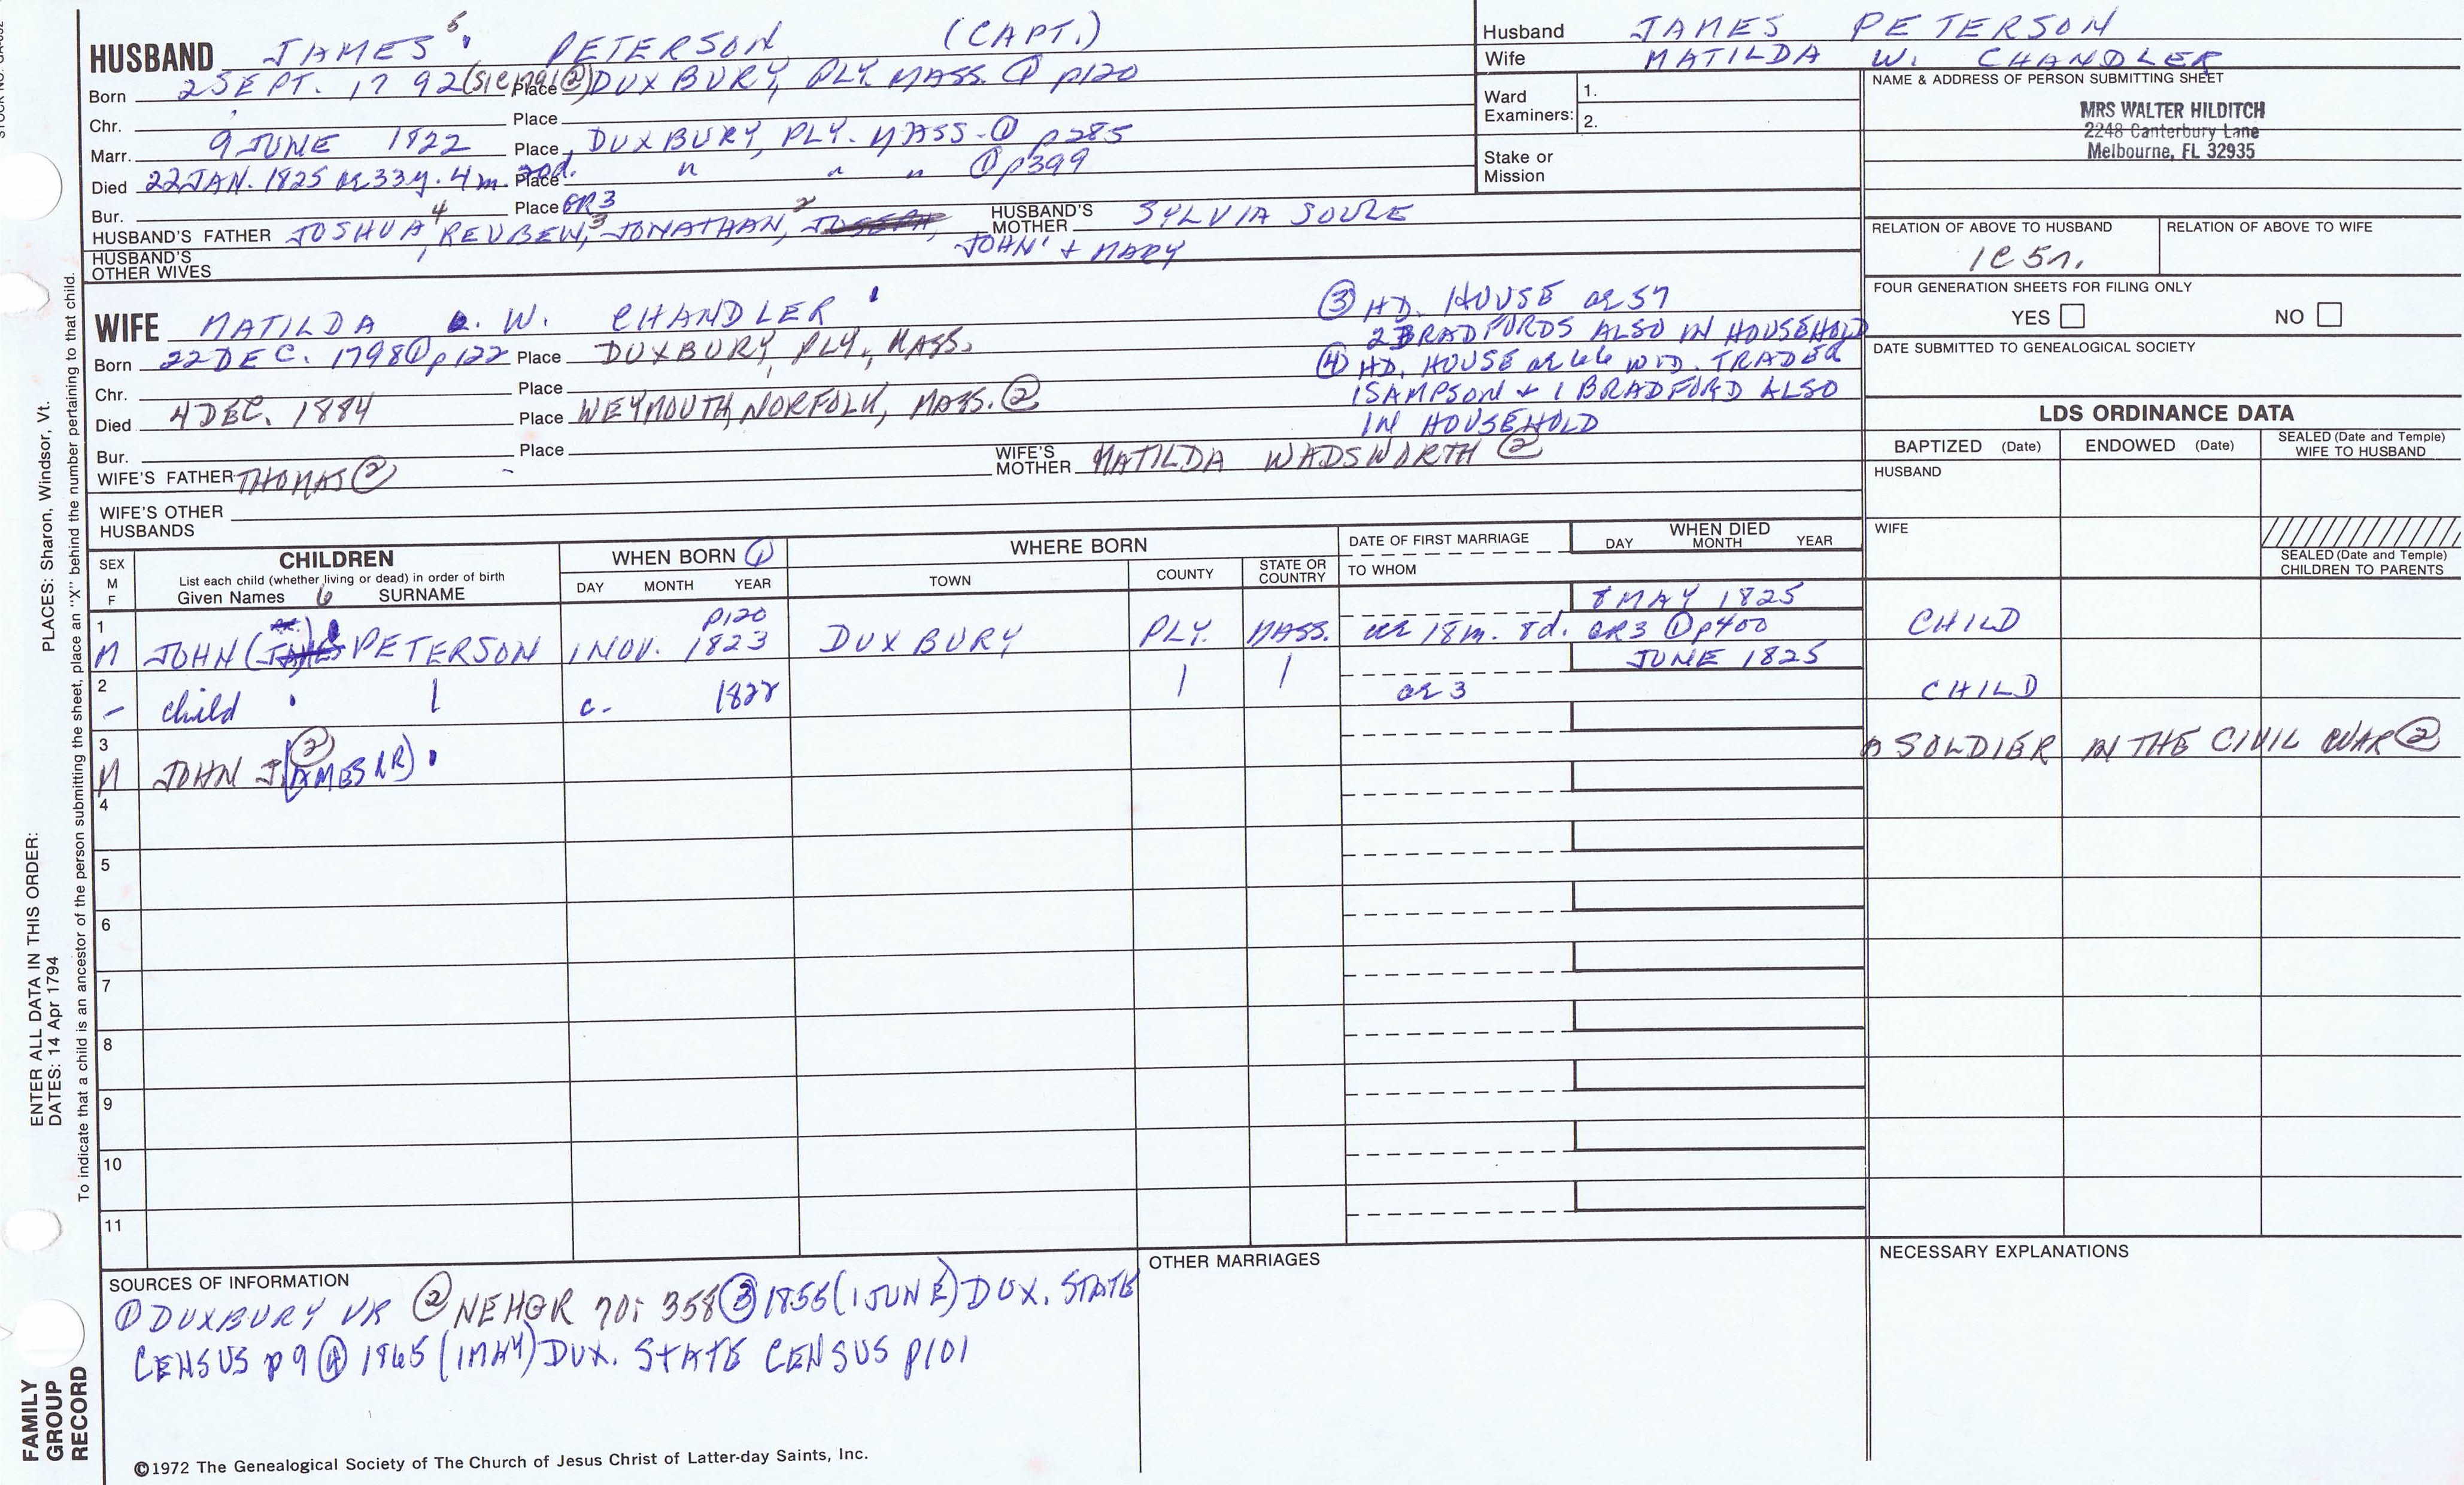 HUSBAND JAMES 5 PETERSON (CAPT.)
Born 2 SEPT. 1792 (sic 1791 ②) Place DUXBURY, PLY. MASS. ① p120
Chr. Place
Marr. 9 JUNE 1822 Place DUXBURY, PLY. MASS. ① p285
Died 22 JAN. 1825 ae 33y. 4m. 20d. Place " " " ① p399
Bur. Place GR3
HUSBAND'S FATHER JOSHUA 4, REUBEN, 3 JONATHAN, 2 JOSEPH, JOHN 1 + MARY
HUSBAND'S MOTHER SYLVIA SOULE
HUSBAND'S OTHER WIVES
WIFE MATILDA W. CHANDLER
Born 22 DEC. 1798 ① p122 Place DUXBURY, PLY., MASS.
Chr. Place
Died 4 DEC. 1884 Place WEYMOUTH, NORFOLK, MASS. ②
Bur. Place
WIFE'S FATHER THOMAS ②
WIFE'S MOTHER MATILDA WADSWORTH ②
WIFE'S OTHER HUSBANDS
③ HD. HOUSE ae 57
2 BRADFORDS ALSO IN HOUSEHOLD
④ HD. HOUSE ae 66 WID. TRADER
1 SAMPSON + 1 BRADFORD ALSO
IN HOUSEHOLD
Husband JAMES PETERSON
Wife MATILDA W. CHANDLER
Ward Examiners: 1.
2.
Stake or Mission
NAME & ADDRESS OF PERSON SUBMITTING SHEET
MRS WALTER HILDITCH
2248 Canterbury Lane
Melbourne, FL 32935
RELATION OF ABOVE TO HUSBAND
1C 5r.
RELATION OF ABOVE TO WIFE
FOUR GENERATION SHEETS FOR FILING ONLY
YES NO
DATE SUBMITTED TO GENEALOGICAL SOCIETY
LDS ORDINANCE DATA
BAPTIZED (Date) ENDOWED (Date) SEALED (Date and Temple) WIFE TO HUSBAND
HUSBAND
WIFE
SEALED (Date and Temple) CHILDREN TO PARENTS
SEX M F
CHILDREN
List each child (whether living or dead) in order of birth
Given Names 6 SURNAME
WHEN BORN ①
DAY MONTH YEAR
WHERE BORN
TOWN COUNTY STATE OR COUNTRY
DATE OF FIRST MARRIAGE
TO WHOM
WHEN DIED
DAY MONTH YEAR
1 M JOHN PETERSON 1 NOV. 1823 p120 DUXBURY PLY. MASS. ae 18m. 8d. GR3 ① p400 8 MAY 1825 CHILD
2 – child c. 1822 ae 3 JUNE 1825 CHILD
3 M JOHN J(AMES JR) ② SOLDIER IN THE CIVIL WAR ②
4
5
6
7
8
9
10
11
SOURCES OF INFORMATION
① DUXBURY VR ② NEHGR 70: 358 ③ 1855 (1 JUNE) DUX. STATE
CENSUS p9 ④ 1865 (1 MAY) DUX. STATE CENSUS p101
OTHER MARRIAGES
NECESSARY EXPLANATIONS
©1972 The Genealogical Society of The Church of Jesus Christ of Latter-day Saints, Inc.
PLACES: Sharon, Windsor, Vt.
ENTER ALL DATA IN THIS ORDER:
DATES: 14 Apr 1794
To indicate that a child is an ancestor of the person submitting the sheet, place an "X" behind the number pertaining to that child.
FAMILY
GROUP
RECORD